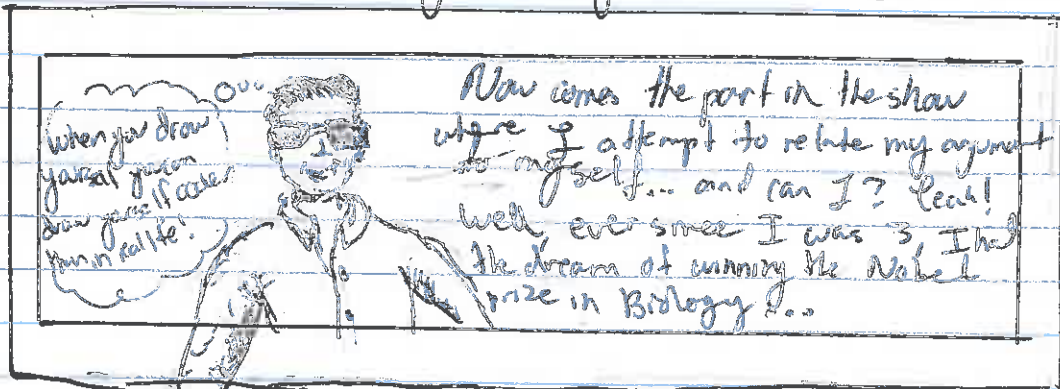 When you draw
yourself you can
draw yourself cooler
than in real life!
Now comes the part in the show
where I attempt to relate my argument
to myself... and can I? Yeah!
Well, ever since I was 3, I had
the dream of winning the Nobel
prize in Biology...